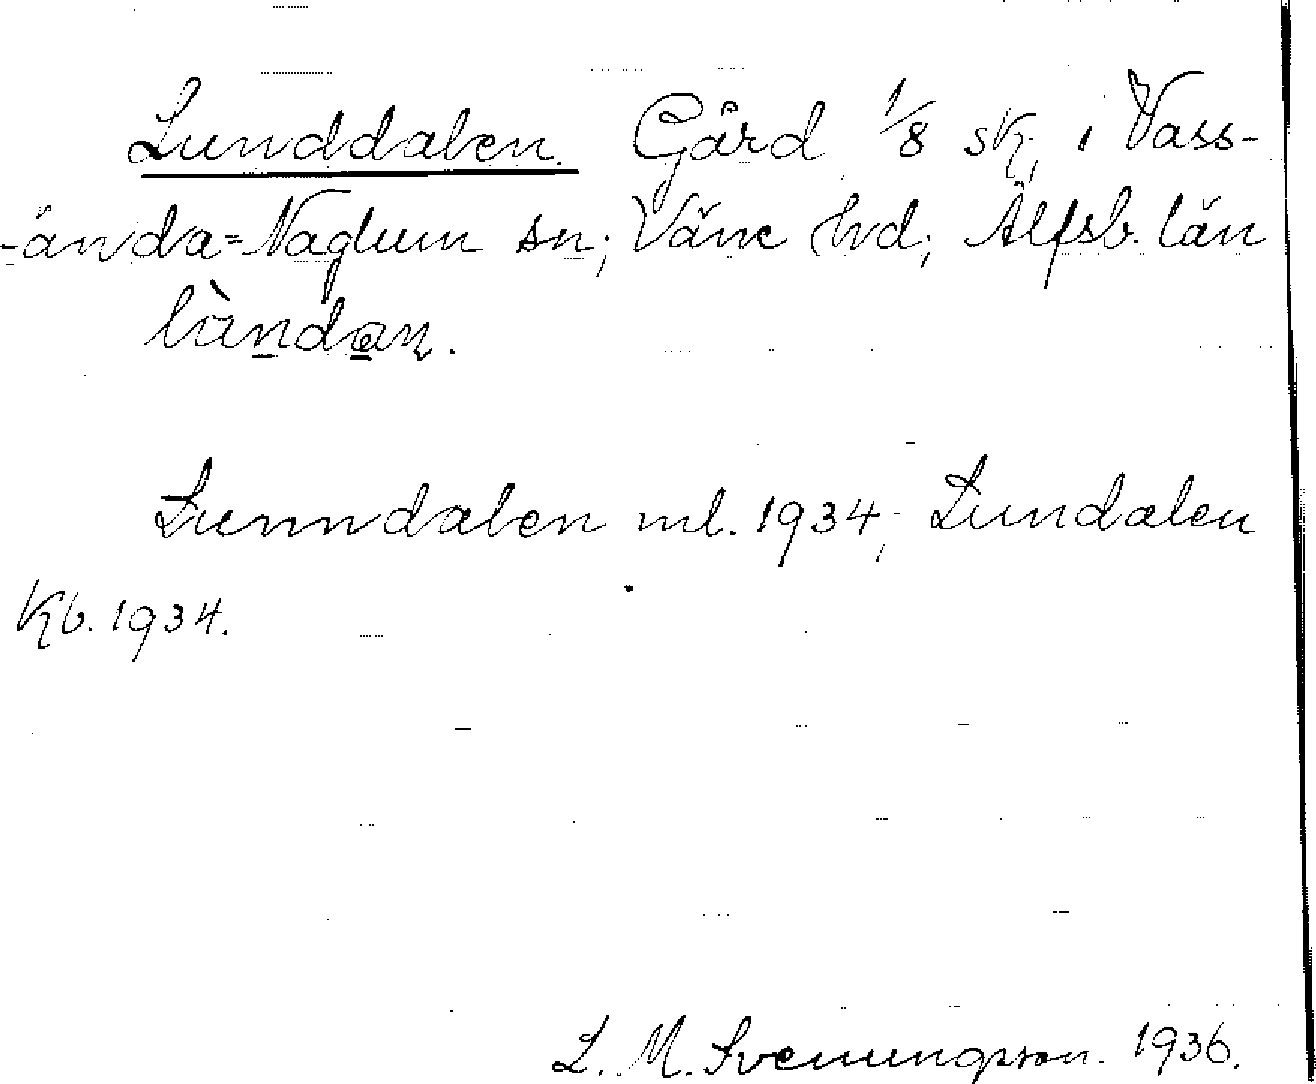 Lunddalen. Gård 1/8 sk, i Vass-
-ända=Naglum sn; Väne hd; Älfsb. län
lùndan.
Lunndalen ml. 1934; Lundalen
Kb. 1934.
L. M. Svenungsson. 1936.